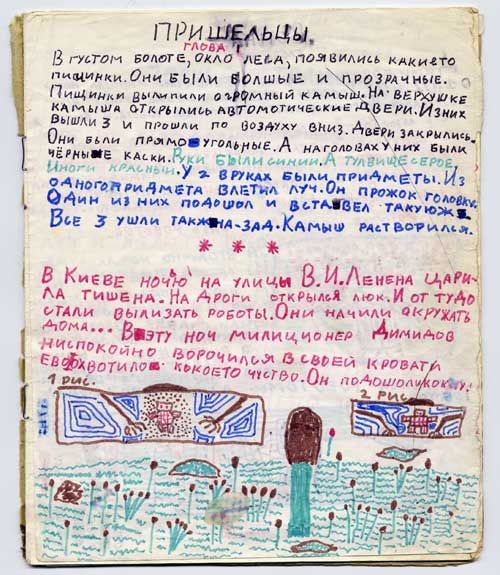 ПРИШЕЛЬЦЫ.
ГЛОВА 1
В ГУСТОМ БОЛОГЕ, ОКЛО ЛЕСА, ПОЯВИЛИСЬ КАКИЕТО
ПИЩИНКИ. ОНИ БЫЛИ БОЛШЫЕ И ПРОЗРАЧНЫЕ.
ПИЩИНКИ ВЫЛИПИЛИ ОГРОМНЫЙ КАМЫШ. НА ВЕРХУШКЕ
КАМЫША ОТКРЫЛИСЬ АВТОМОТИЧЕСКИЕ ДВЕРИ. ИЗНИХ
ВЫШЛИ 3 И ПРОШЛИ ПО ВОЗДУХУ ВНИЗ. ДВЕРИ ЗАКРЫЛИСЬ.
ОНИ БЫЛИ ПРЯМОУГОЛЬНЫЕ. А НАГОЛОВАХ У НИХ БЫЛИ
ЧЁРНЫЕ КАСКИ. РУКИ БЫЛИ СИНИИ. А ТУЛВИЩЕ СЕРОЕ.
ИНОГИ КРАСНЫИ. У 2 ВРУКАХ БЫЛИ ПРИДМЕТЫ. ИЗ
ОДНОГО ПРИДМЕТА ВЛЕТИЛ ЛУЧ. ОН ПРОЖОК ГОЛОВКУ.
ОДИН ИЗ НИХ ПОДОШОЛ И ВСТАВЕЛ ТАКУЮЖ
ВСЕ 3 УШЛИ ТАКЖНА-ЗАД. КАМЫШ РАСТВОРИЛСЯ.
* * *
В КИЕВЕ НОЧЬЮ НА УЛИЦЫ В.И.ЛЕНЕНА ЦАРИ-
ЛА ТИШЕНА. НА ДРОГИ ОТКРЫЛСЯ ЛЮК. И ОТ ТУДО
СТАЛИ ВЫЛИЗАТЬ РОБОТЫ. ОНИ НАЧИЛИ ОКРУЖАТЬ
ДОМА... В ЭТУ НОЧ МИЛИЦИОНЕР ДИМИДОВ
НИСПОКОЙНО ВОРОЧИЛСЯ В СВОЕЙ КРОВАТИ
ЕВО ХВОТИЛО КОКОЕТО ЧУСТВО. ОН ПОДОШОЛ
1 РИС.
2 РИС.